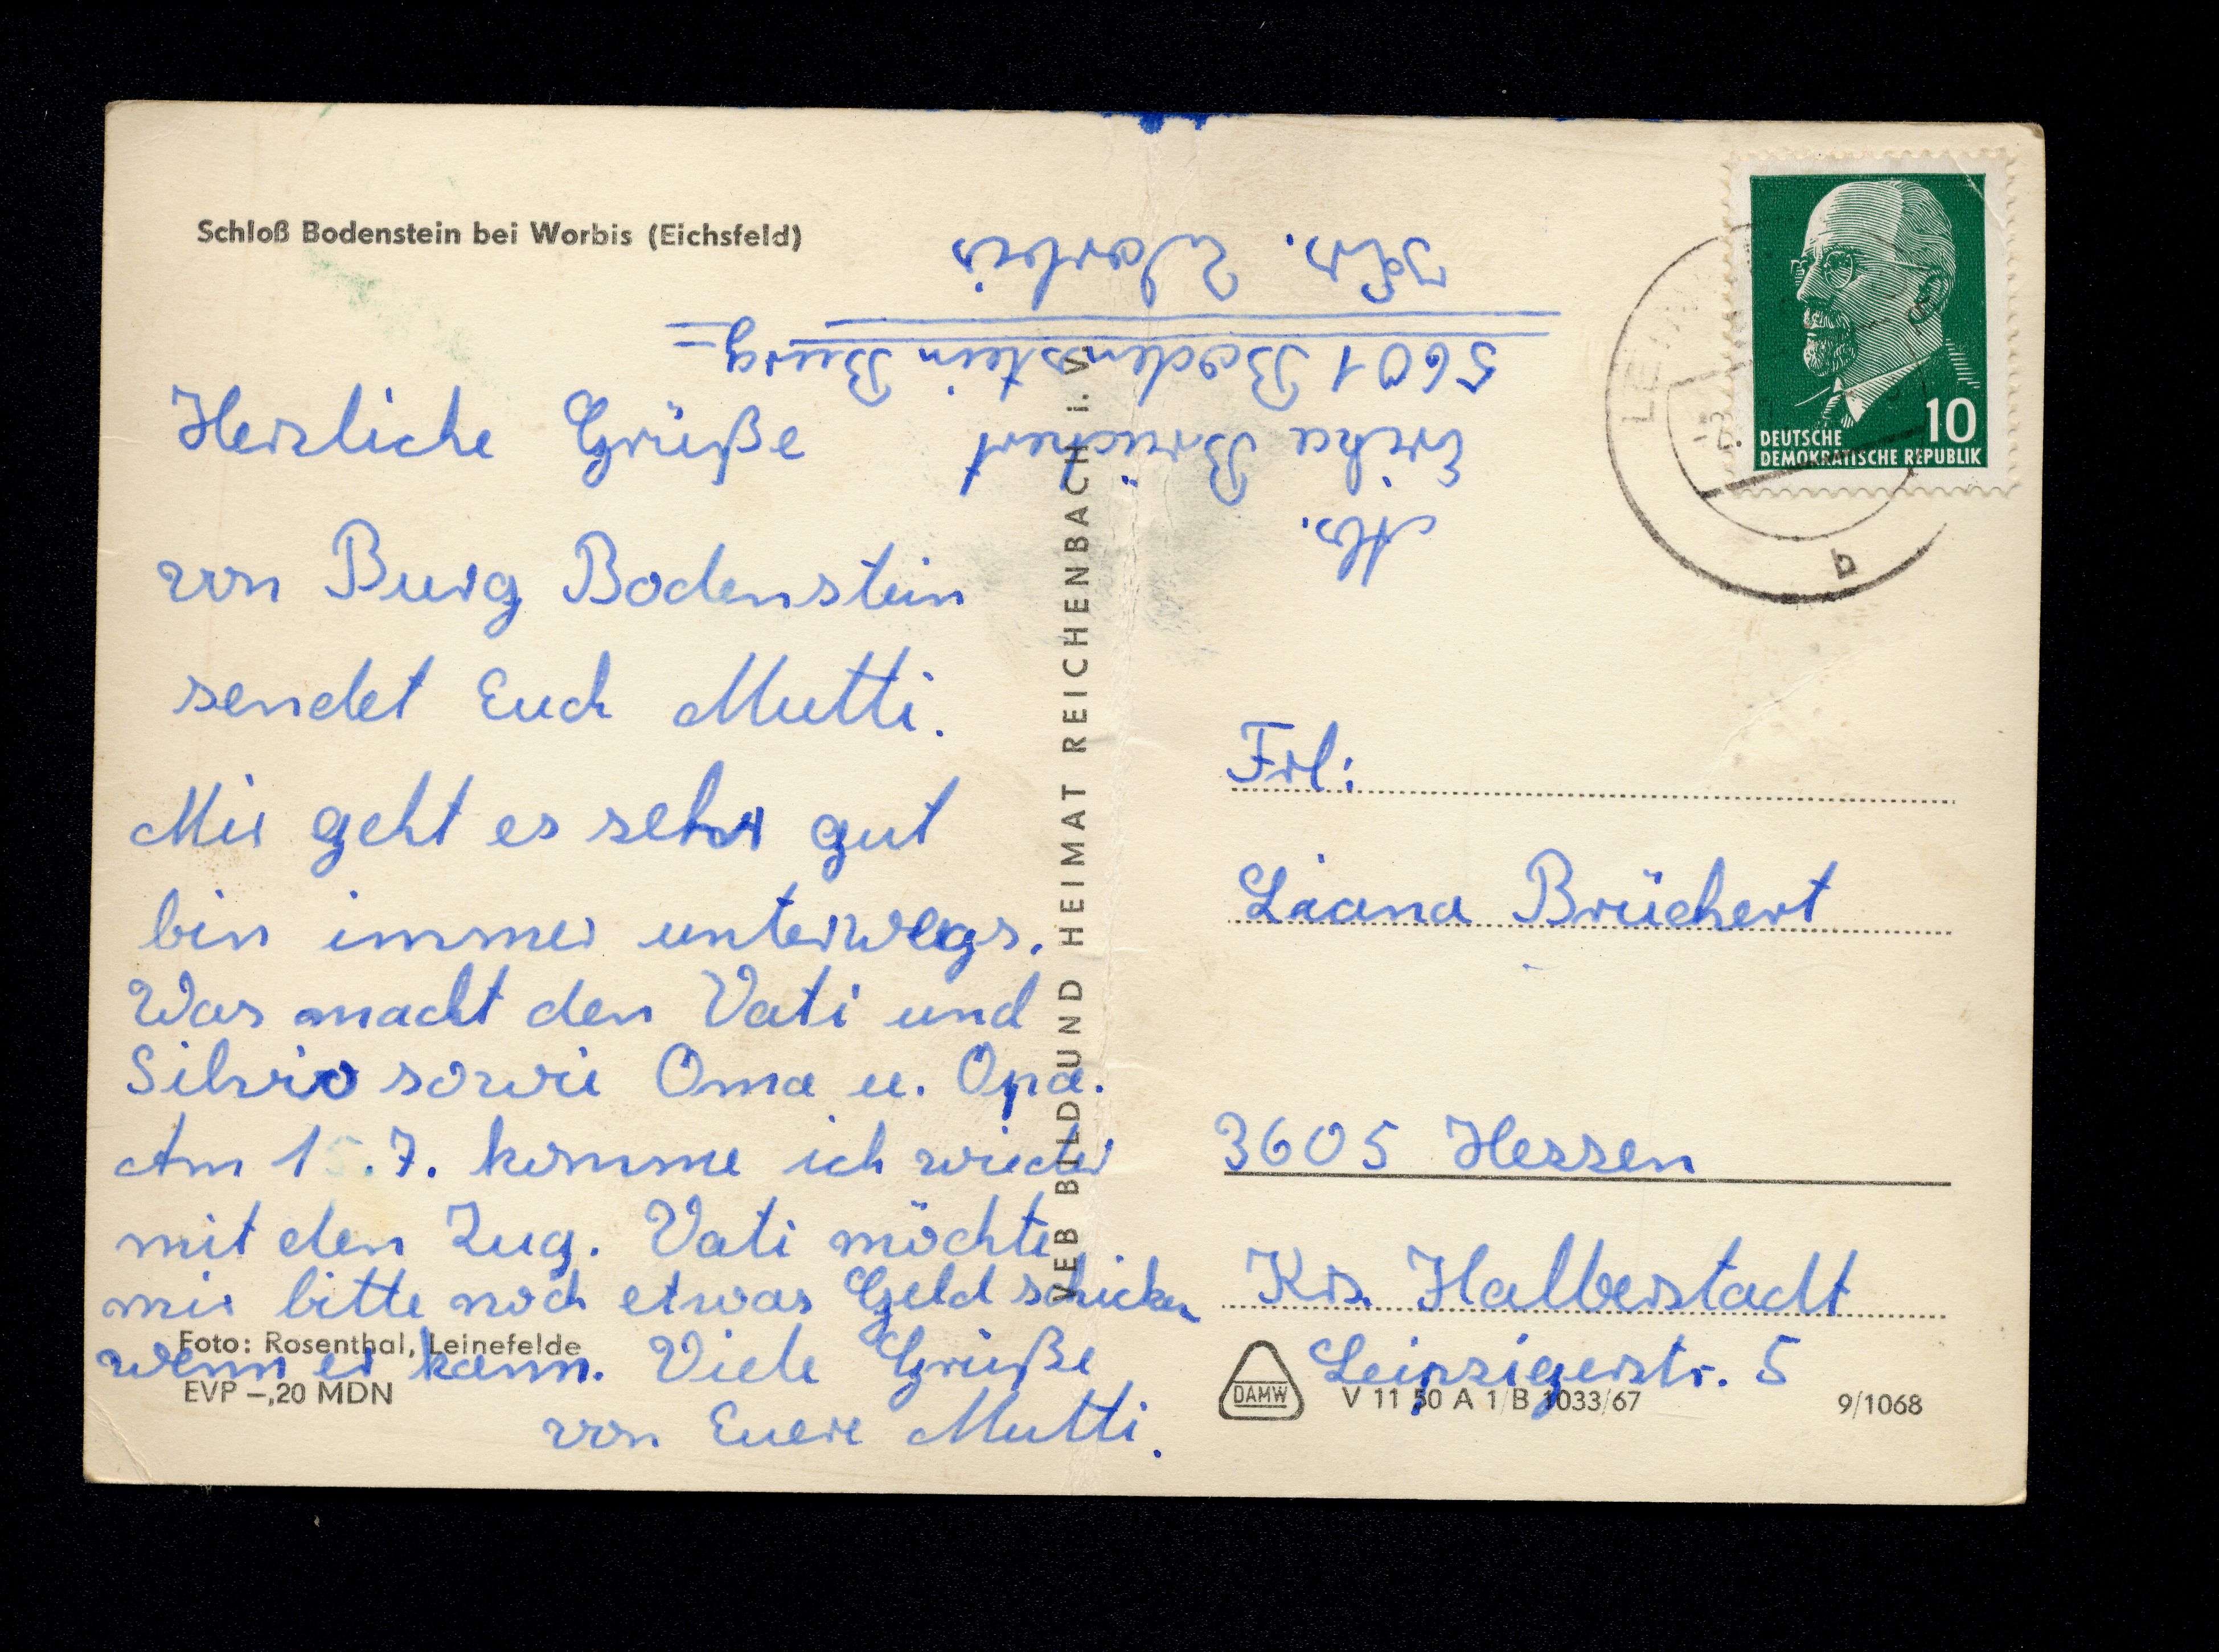 Schloß Bodenstein bei Worbis (Eichsfeld)
Herzliche Grüße
von Burg Bodenstein
sendet Euch Mutti.
Mir geht es sehr gut
bin immer unterwegs.
Was macht den Vati und
Silvio sowie Oma u. Opa.
Am 15.7. komme ich wieder
mit den Zug. Vati möchte
mir bitte noch etwas Geld schicken
wenn er kann. Viele Grüße
von Euere Mutti.
Foto: Rosenthal, Leinefelde
EVP –,20 MDN
VEB BILD UND HEIMAT REICHENBACH i. V.
Abs.
Erika Brüchert
5601 Bodenstein Burg
Krs. Worbis
10
DEUTSCHE
DEMOKRATISCHE REPUBLIK
b
Frl:
Liana Brüchert
3605 Hessen
Krs. Halberstadt
Leipzigerstr. 5
DAMW
V 11 50 A 1/B 1033/67
9/1068